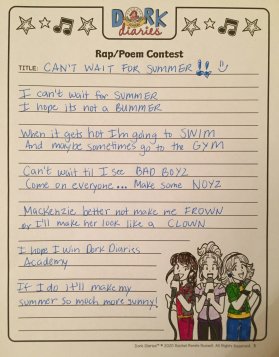 DORK
diaries
Rap/Poem Contest
TITLE: CAN'T WAIT FOR SUMMER!! :)
I can't wait for SUMMER
I hope its not a BUMMER
When it gets hot I'm going to SWIM
And maybe sometimes go to the GYM
Can't wait til I see BAD BOYZ
Come on everyone... Make some NOYZ
MacKenzie better not make me FROWN
or I'll make her look like a CLOWN
I hope I win Dork Diaries
Academy
If I do it'll make my
summer so much more sunny!
Dork Diaries™ © 2020 Rachel Renée Russell. All Rights Reserved.